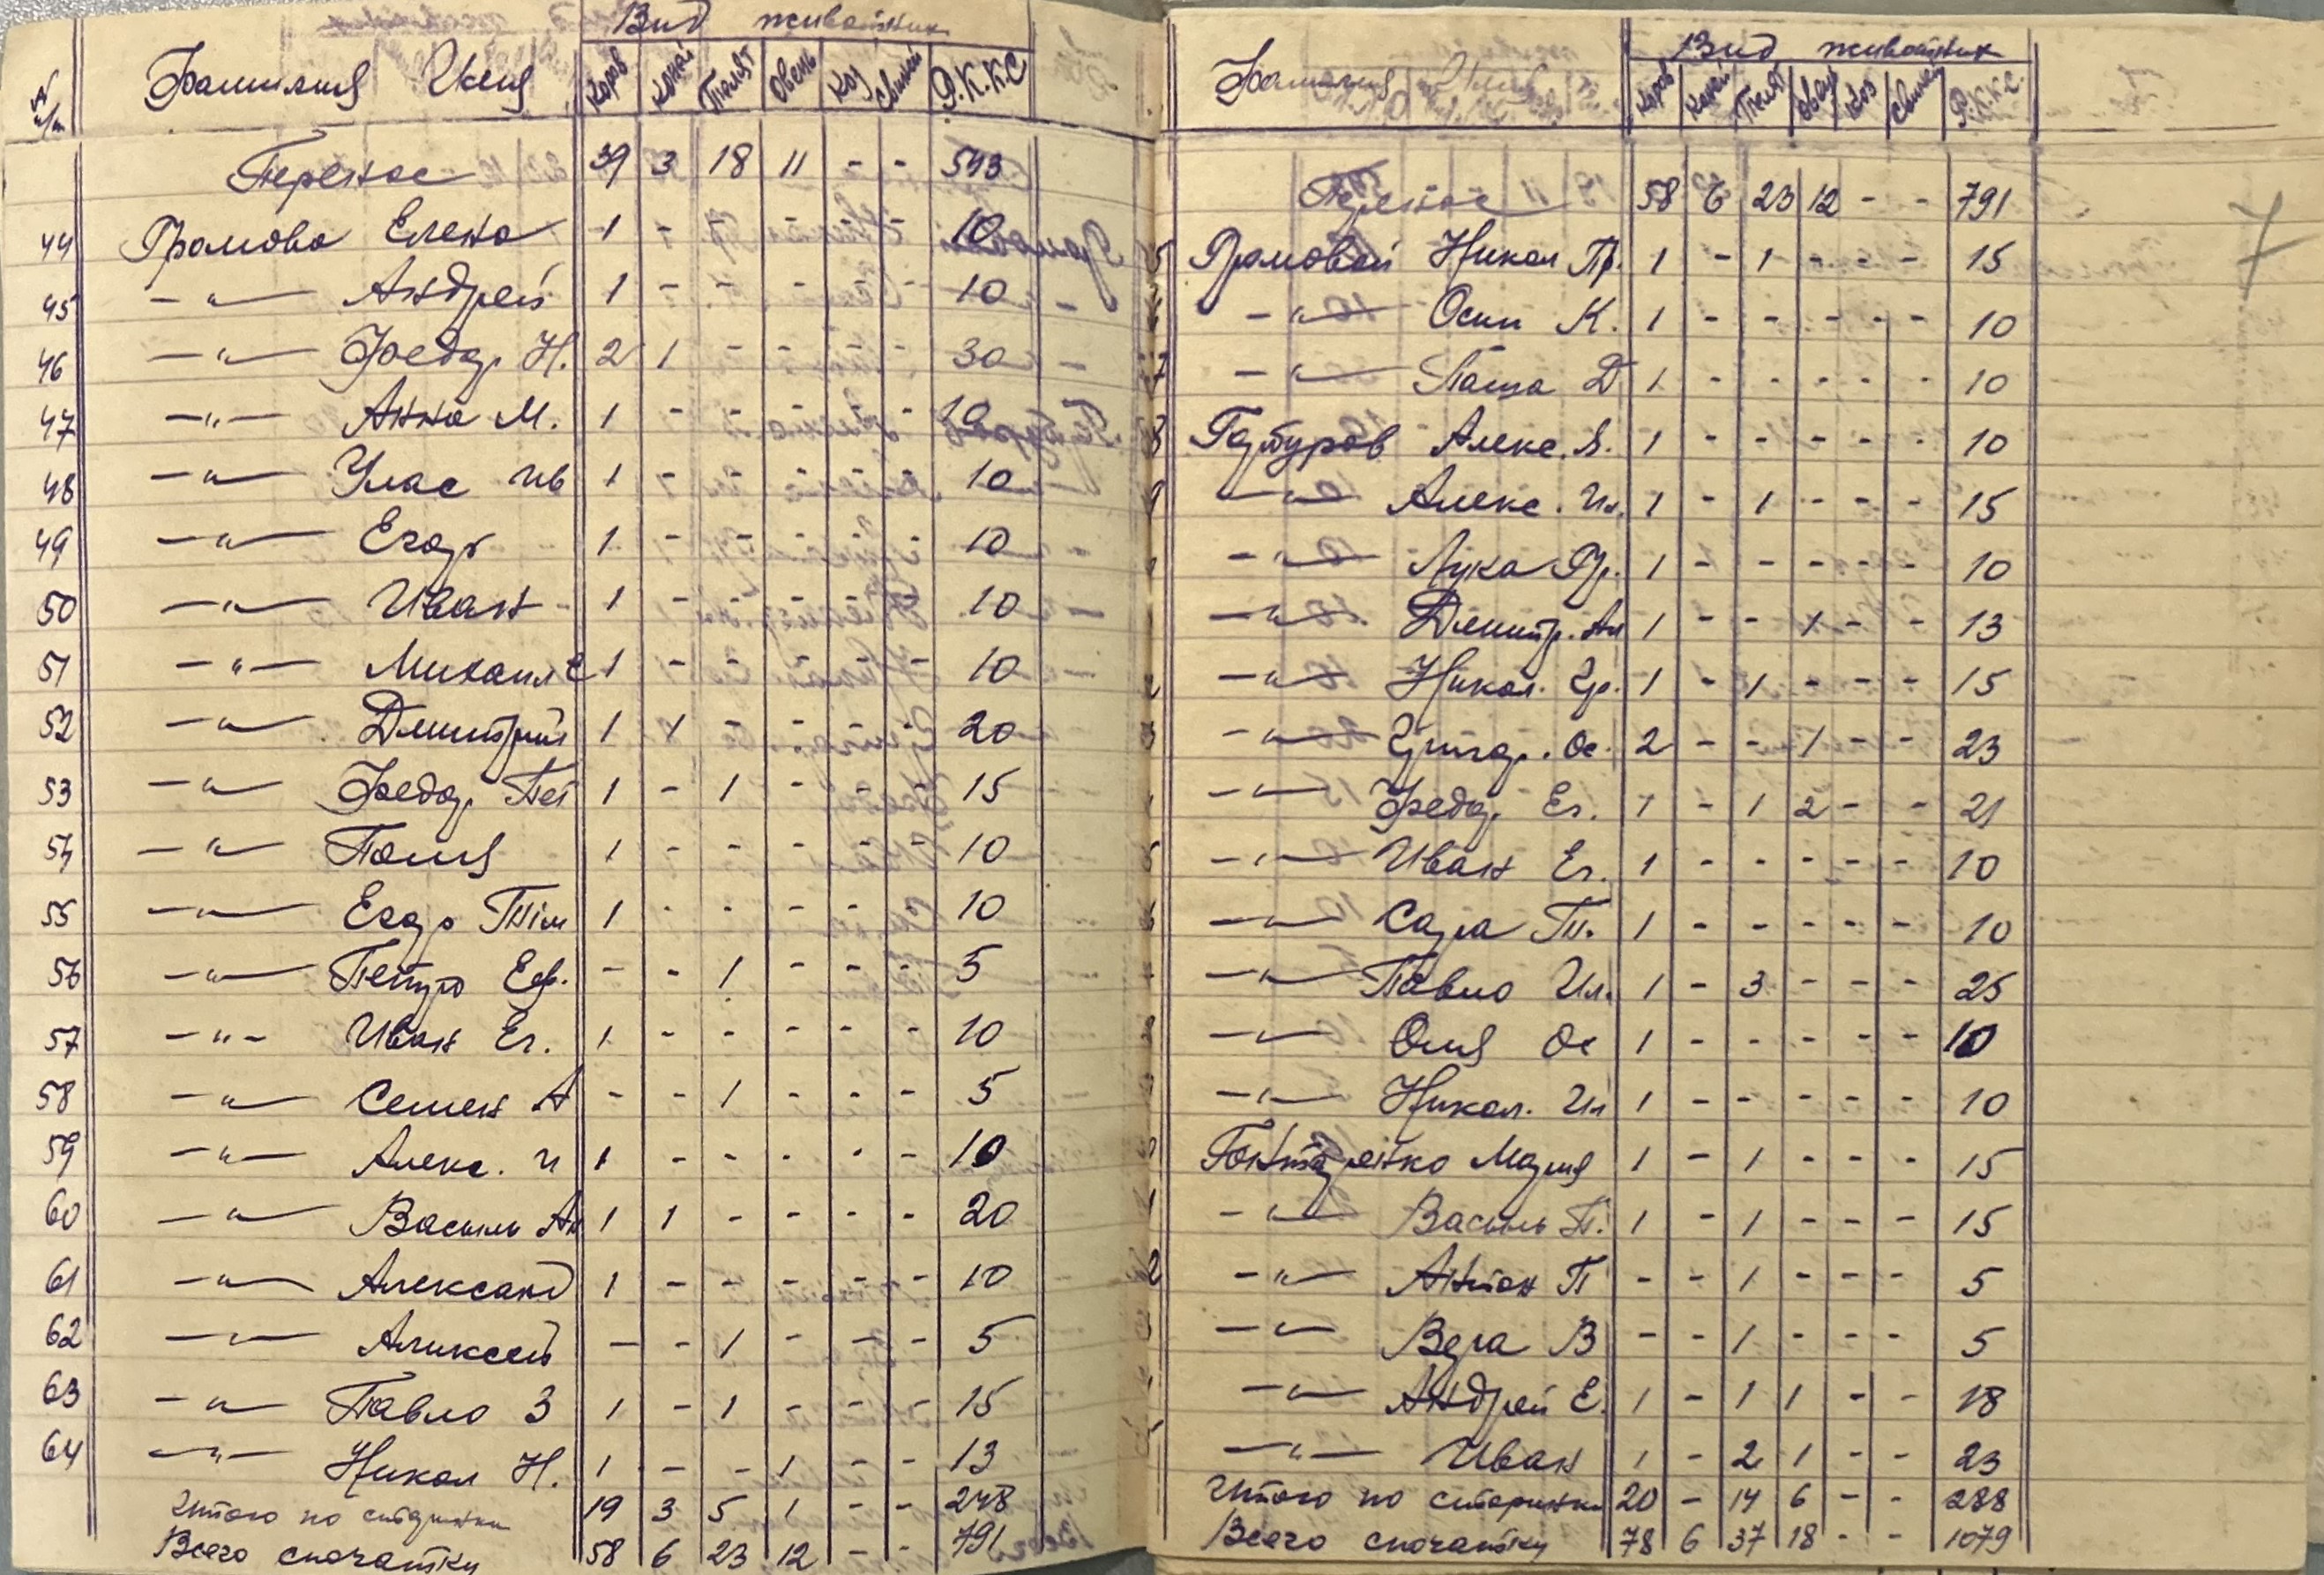 Вид живойтних
№ п/п Фамилия Имя Коров Коней Телят Овень Коз Свиней Р.К.К.С
Перенос 39 3 18 11 - - 543
44 Громова Елена 1 - - - - - 10
45 -"- Андрей 1 - - - - - 10
46 -"- Федор Н. 2 1 - - - - 30
47 -"- Анна М. 1 - - - - - 10
48 -"- Улас Ив 1 - - - - - 10
49 -"- Егор 1 - - - - - 10
50 -"- Иван 1 - - - - - 10
51 -"- Михаил Е 1 - - - - - 10
52 -"- Дмитрий 1 1 - - - - 20
53 -"- Федор Пет 1 - 1 - - - 15
54 -"- Поля 1 - - - - - 10
55 -"- Егор Тим 1 - - - - - 10
56 -"- Петро Еф. - - 1 - - - 5
57 -"- Иван Ег. 1 - - - - - 10
58 -"- Семен А - - 1 - - - 5
59 -"- Алекс. И 1 - - - - - 10
60 -"- Василь Ан 1 1 - - - - 20
61 -"- Александ 1 - - - - - 10
62 -"- Аликсей - - 1 - - - 5
63 -"- Павло З 1 - 1 - - - 15
64 -"- Никол Н. 1 - - 1 - - 13
Итого по старинки 19 3 5 1 - - 248
Всего спочатку 58 6 23 12 - - 791
Вид живойтних
Фамилия Имя Коров Коней Телят Овец Коз Свиней Р.К.К.С.
Перенос 58 6 23 12 - - 791
7
5 Громовой Никол Пр. 1 - 1 - - - 15
-"- Осип К. 1 - - - - - 10
7 -"- Паша Д 1 - - - - - 10
8 Гартуров Алекс. Я. 1 - - - - - 10
9 -"- Алекс. Ил. 1 - 1 - - - 15
-"- Лука Фр. 1 - - - - - 10
-"- Дмитр. Ал 1 - - 1 - - 13
2 -"- Никол. Гр. 1 - 1 - - - 15
3 -"- Григор. Ос. 2 - - 1 - - 23
-"- Федор Ег. 1 - 1 2 - - 21
5 -"- Иван Ег. 1 - - - - - 10
6 -"- Сара Т. 1 - - - - - 10
-"- Павло Ил. 1 - 3 - - - 25
-"- Оля Ос 1 - - - - - 10
-"- Никол. Ил 1 - - - - - 10
Гонтаренко Мария 1 - 1 - - - 15
-"- Василь П. 1 - 1 - - - 15
2 -"- Антон П - - 1 - - - 5
3 -"- Вера В - - 1 - - - 5
-"- Андрей Е. 1 - 1 1 - - 18
-"- Иван 1 - 2 1 - - 23
Итого по старинки 20 - 14 6 - - 288
Всего спочатку 78 6 37 18 - - 1079